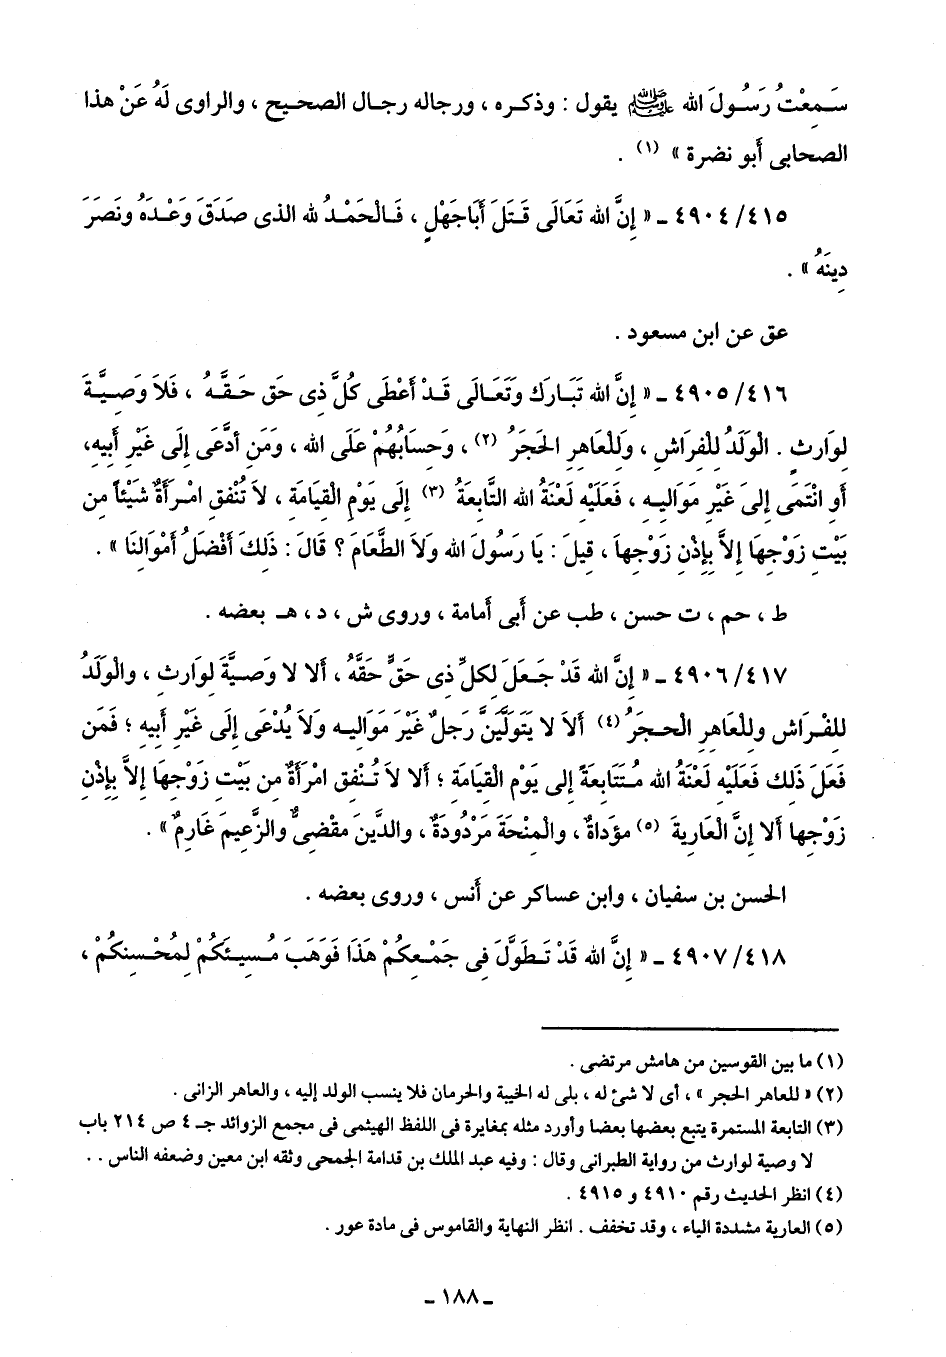 سَمِعْتُ رَسُولَ الله ﷺ يقول : وذكره ، ورجاله رجال الصحيح ، والراوى لَهُ عَنْ هذا
الصحابى أبو نضرة » (١) .
٤٩٠٤/٤١٥ ـ « إِنَّ الله تَعَالَى قَتَلَ أَبَاجَهْلٍ ، فَالْحَمْدُ لله الذى صَدَقَ وَعْدَهُ ونَصَرَ
دِينَهُ » .
عق عن ابن مسعود .
٤٩٠٥/٤١٦ ـ « إِنَّ الله تَبَارَك وَتَعَالَى قَدْ أَعْطَى كُلَّ ذى حَق حَقَّهُ ، فَلاَ وَصِيَّةَ
لوَارِثٍ . الْوَلَدُ لِلْفِرَاشِ ، وَلِلْعَاهِرِ الحَجَرُ (٢) ، وَحِسَابُهُمْ عَلَى الله ، وَمَنِ أدَّعَى إِلَى غَيْرِ أَبِيه،
أو انْتَمَى إِلىَ غَيْرِ مَوَاليِه ، فَعَلَيْهِ لَعْنَةُ الله التَّابعَةُ (٣) إِلَى يَوْمِ الْقِيَامَة ، لاَ تُنْفِق امْرَأَةٌ شَيْئاً مِن
بَيْتِ زَوْجِهَا إِلاَّ بِإِذْنِ زَوْجِهاَ ، قيلَ : يَا رَسُولَ الله وَلاَ الطَّعَامَ ؟ قَالَ : ذَلِكَ أَفْضَلُ أَمْوَالنَا » .
ط ، حم ، ت حسن ، طب عن أبى أمامة ، وروى ش ، د ، هـ بعضه .
٤٩٠٦/٤١٧ ـ « إِنَّ الله قَدْ جَعَلَ لِكلِّ ذِى حَقٍّ حَقَّهُ ، أَلا لا وَصِيَّةَ لِوَارِثٍ ، والْوَلَدُ
لِلفْرَاشِ وللْعَاهِرِ الْحجَرُ (٤) أَلاَ لا يَتَوَلَّيَنَّ رَجلٌ غَيْرَ مَوَالِيهِ وَلاَ يُدْعَى إِلَى غَيْرِ أبيهِ ؛ فَمَن
فَعَلَ ذَلك فَعَلَيْه لَعْنَةُ الله مُتَتَابَعَةً إلى يَوْمِ الْقيَامَة ؛ أَلا لاَ تُنْفِق امْرَأَةٌ مِن بَيْتِ زَوْجِهَا إلاَّ بِإِذْنِ
زَوْجِها أَلا إِنَّ الْعَارِيةَ (٥) مؤَداةٌ ، والْمنْحَةَ مَرْدُودَةٌ ، والدَّينَ مقْضِىٌّ والزَّعِيمَ غَارِمٌ » .
الحسن بن سفيان ، وابن عساكر عن أنس ، وروى بعضه .
٤٩٠٧/٤١٨ ـ « إنَّ الله قَدْ تَطَوَّلَ فِى جَمْعِكُمْ هَذَا فَوَهَبَ مُسِيئَكُمْ لِمُحْسِنكُمْ ،
(١) ما بين القوسين من هامش مرتضى .
(٢) « للعاهر الحجر » ، أى لا شئ له ، بلى له الخيبة والحرمان فلا ينسب الولد إليه ، والعاهر الزانى .
(٣) التابعة المستمرة يتبع بعضها بعضا وأورد مثله بمغايرة فى اللفظ الهيثمى فى مجمع الزوائد جـ ٤ ص ٢١٤ باب
لا وصية لوارث من رواية الطبرانى وقال : وفيه عبد الملك بن قدامة الجمحى وثقه ابن معين وضعفه الناس . .
(٤) انظر الحديث رقم ٤٩١٠ و ٤٩١٥ .
(٥) العارية مشددة الياء ، وقد تخفف . انظر النهاية والقاموس فى مادة عور .
ـ ١٨٨ ـ